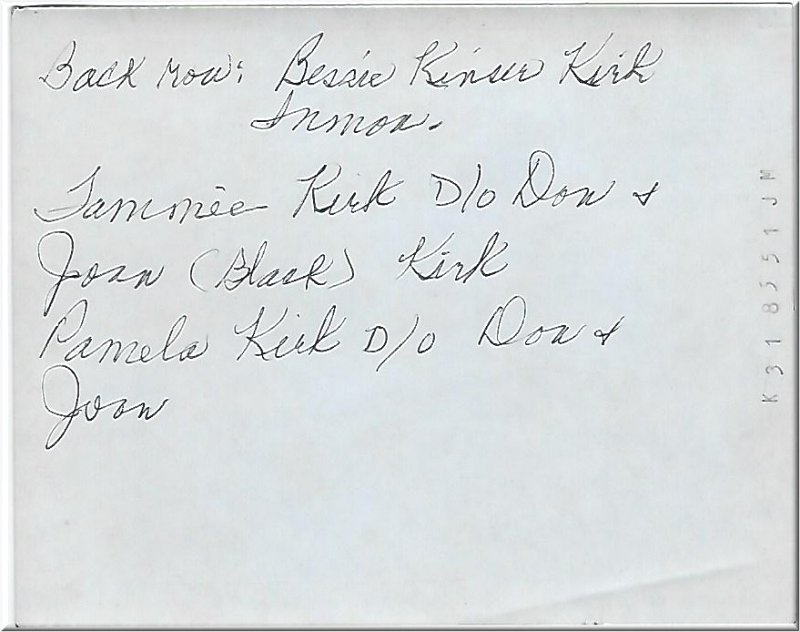 Back row: Bessie Kinser Kirk
Inmon.
Tammie Kirk D/o Don &
Joan (Black) Kirk
Pamela Kirk D/o Don &
Joan